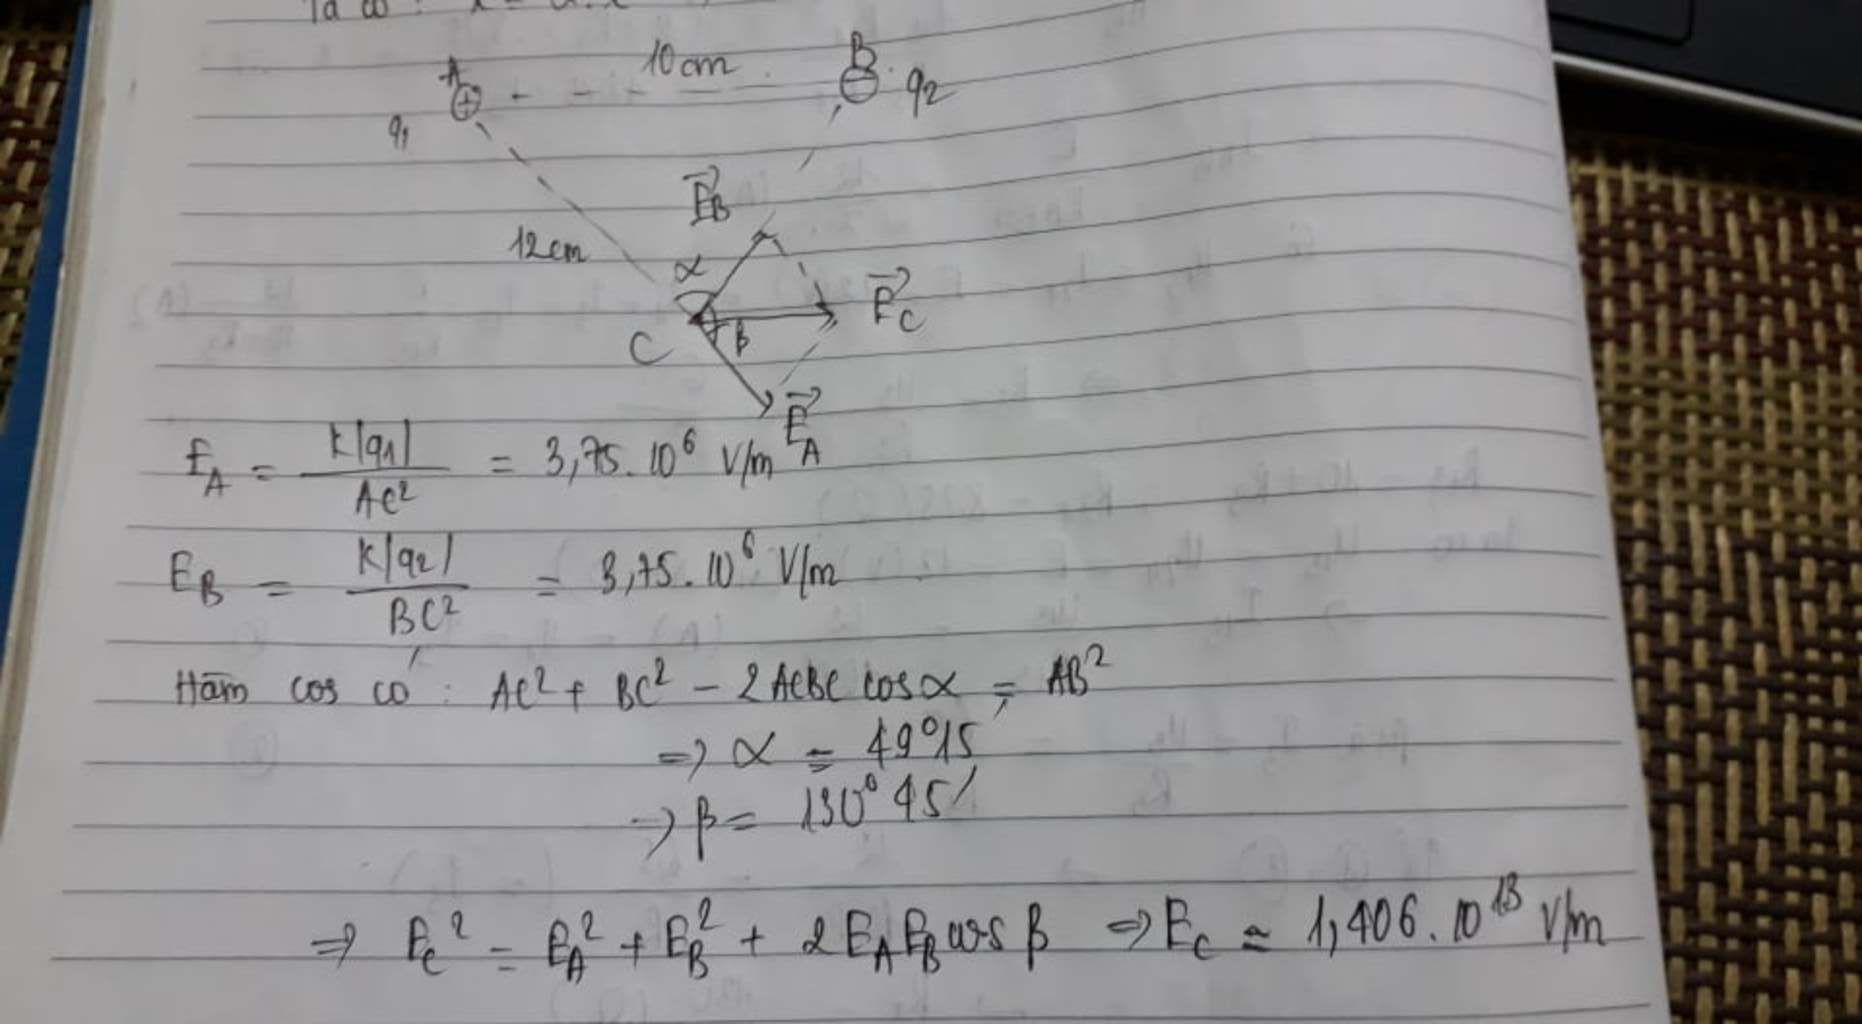 Ta có : x
A
10cm
B
q₁
q₂
E⃗_B
12cm
α
E⃗_C
C
β
E⃗_A
E_A = k|q₁| / AC² = 3,75.10⁶ V/m
E_B = k|q₂| / BC² = 3,75.10⁶ V/m
Hàm cos có : AC² + BC² - 2ACBC cosα = AB²
=> α = 49°15'
=> β = 130°45'
=> E_C² = E_A² + E_B² + 2E_A E_B cos β => E_C ≈ 1,406.10¹³ V/m